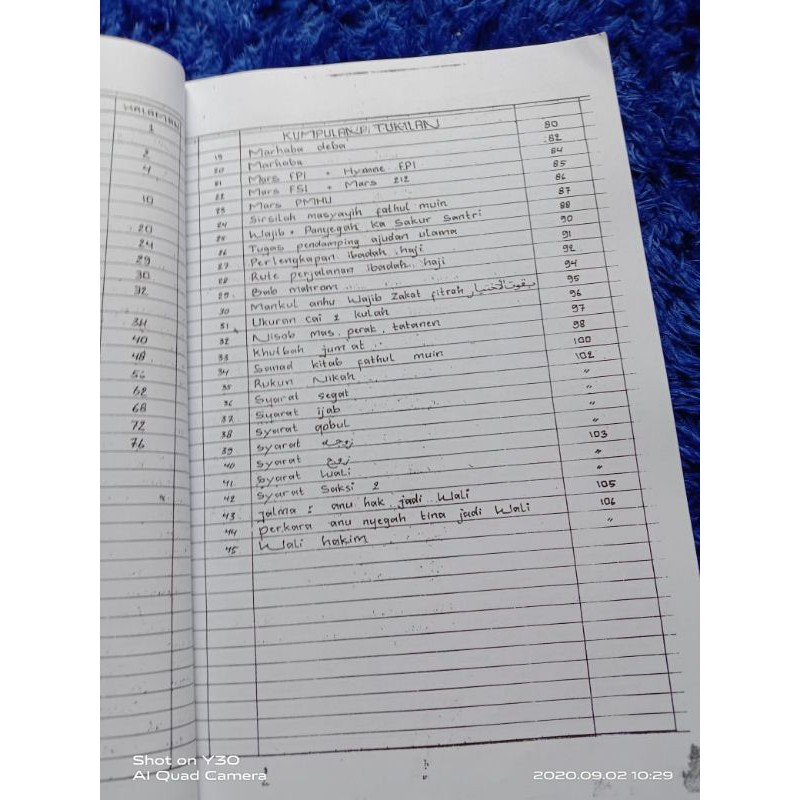 HALAMAN
1
2
4
10
20
24
29
30
32
34
40
48
56
62
68
72
76
KUMPULAN TUKILAN
19 Marhaba deba 80
20 Marhaba 82
21 Mars FPI + Hymne FPI 84
22 Mars FSI + Mars 212 85
23 Mars PMHU 86
24 Sirsilah masyayih fathul muin 87
25 Wajib + Panyegah ka Sakur Santri 88
26 Tugas pendamping ajudan ulama 90
27 Perlengkapan ibadah haji 91
28 Rute perjalanan ibadah haji 92
29 Bab mahram 94
30 Mankul anhu Wajib Zakat fitrah 95
31 Ukuran cai 2 kulah 96
32 Nisob mas, perak, tatanen 97
33 Khutbah jum'at 98
34 Sanad kitab fathul muin 100
35 Rukun Nikah 102
36 Syarat segat "
37 Syarat ijab "
38 Syarat qobul "
39 Syarat زوجة 103
40 Syarat زوج "
41 Syarat Wali "
42 Syarat Saksi 2 105
43 Jalma2 anu hak jadi Wali 106
44 Perkara anu nyegah tina jadi Wali "
45 Wali hakim
Shot on Y30
AI Quad Camera
2020.09.02 10:29